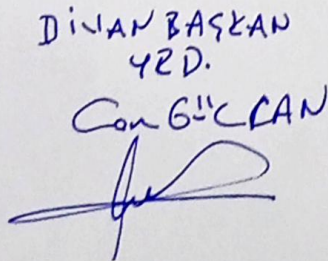 DİVAN BAŞKAN
YRD.
Can GÜCRAN